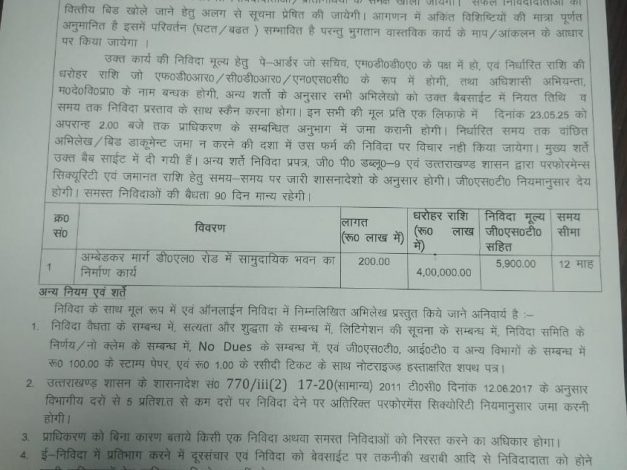 वित्तीय बिड खोले जाने हेतु अलग से सूचना प्रेषित की जायेगी। आगणन में अंकित विशिष्टियों की मात्रा पूर्णत
अनुमानित है इसमें परिवर्तन (घटत/बढत ) सम्भावित है परन्तु भुगतान वास्तविक कार्य के माप/आंकलन के आधार
पर किया जायेगा ।
उक्त कार्य की निविदा मूल्य हेतु पे–आर्डर जो सचिव, एम०डी०डी०ए० के पक्ष में हो, एवं निर्धारित राशि की
धरोहर राशि जो एफ०डी०आर०/सी०डी०आर०/एन०एस०सी० के रूप में होगी, तथा अधिशासी अभियन्ता,
म०दे०वि०प्रा० के नाम बन्धक होगी, अन्य शर्तो के अनुसार सभी अभिलेखो को उक्त बैबसाईट में नियत तिथि व
समय तक निविदा प्रस्ताव के साथ स्कैन करना होगा। इन सभी की मूल प्रति एक लिफाफे में दिनांक 23.05.25 को
अपरान्ह 2.00 बजे तक प्राधिकरण के सम्बन्धित अनुभाग में जमा करानी होगी। निर्धारित समय तक वांछित
अभिलेख/बिड डाकूमेन्ट जमा न करने की दशा में उस फर्म की निविदा पर विचार नही किया जायेगा। मुख्य शर्ते
उक्त बैब साईट में दी गयी हैं। अन्य शर्ते निविदा प्रपत्र, जी० पी० डब्लू०–9 एवं उत्तराखण्ड शासन द्वारा परफोरमेन्स
सिक्यूरिटी एवं जमानत राशि हेतु समय–समय पर जारी शासनादेशो के अनुसार होगी। जी०एस०टी० नियमानुसार देय
होगी। समस्त निविदाओं की बैधता 90 दिन मान्य रहेगी।
क्र० सं० विवरण लागत (रू० लाख में) धरोहर राशि (रू० लाख में) निविदा मूल्य जी०एस०टी० सहित समय सीमा
1 अम्बेडकर मार्ग डी०एल० रोड में सामुदायिक भवन का निर्माण कार्य 200.00 4,00,000.00 5,900.00 12 माह
अन्य नियम एवं शर्ते
निविदा के साथ मूल रूप में एवं ऑनलाईन निविदा में निम्नलिखित अभिलेख प्रस्तुत किये जाने अनिवार्य है :–
1. निविदा वैधता के सम्बन्ध में, सत्यता और शुद्धता के सम्बन्ध में, लिटिगेशन की सूचना के सम्बन्ध में, निविदा समिति के
निर्णय/नो क्लेम के सम्बन्ध में, No Dues के सम्बन्ध में, एवं जी०एस०टी०, आई०टी० व अन्य विभागों के सम्बन्ध में
रू० 100.00 के स्टाम्प पेपर, एवं रू० 1.00 के रसीदी टिकट के साथ नोटराइज्ड हस्ताक्षरित शपथ पत्र।
2. उत्तराखण्ड शासन के शासनादेश सं० 770/iii(2) 17-20(सामान्य) 2011 टी०सी० दिनांक 12.06.2017 के अनुसार
विभागीय दरों से 5 प्रतिशत से कम दरों पर निविदा देने पर अतिरिक्त परफोरमेंस सिक्योरिटी नियमानुसार जमा करनी
होगी।
3. प्राधिकरण को बिना कारण बताये किसी एक निविदा अथवा समस्त निविदाओं को निरस्त करने का अधिकार होगा।
4. ई–निविदा में प्रतिभाग करने में दूरसंचार एवं निविदा को बेवसाईट पर तकनीकी खराबी आदि से निविदादाता को होने